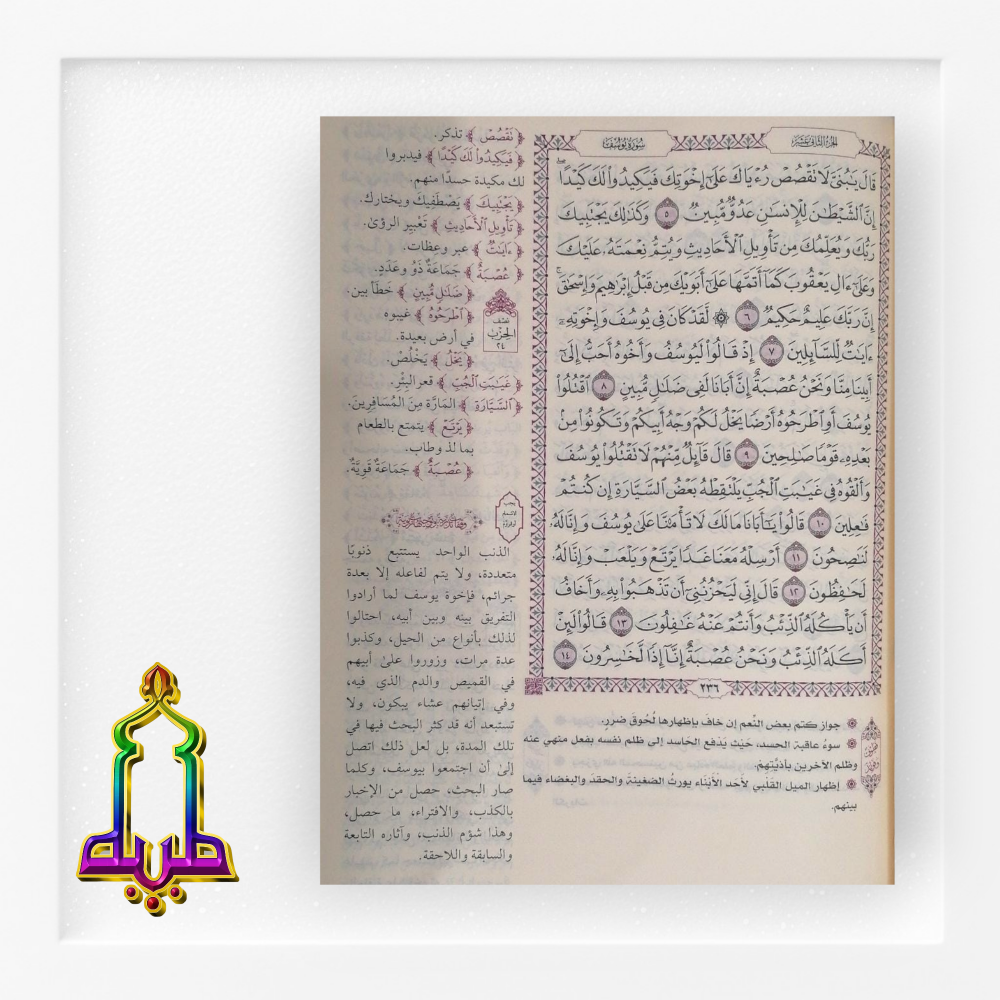 الجزء الثاني عشر
سورة يوسف
قَالَ يَٰبُنَيَّ لَا تَقْصُصْ رُءْيَاكَ عَلَىٰٓ إِخْوَتِكَ فَيَكِيدُوا۟ لَكَ كَيْدًا ۖ
إِنَّ ٱلشَّيْطَٰنَ لِلْإِنسَٰنِ عَدُوٌّ مُّبِينٌ ٥ وَكَذَٰلِكَ يَجْتَبِيكَ
رَبُّكَ وَيُعَلِّمُكَ مِن تَأْوِيلِ ٱلْأَحَادِيثِ وَيُتِمُّ نِعْمَتَهُۥ عَلَيْكَ
وَعَلَىٰٓ ءَالِ يَعْقُوبَ كَمَآ أَتَمَّهَا عَلَىٰٓ أَبَوَيْكَ مِن قَبْلُ إِبْرَٰهِيمَ وَإِسْحَٰقَ ۚ
إِنَّ رَبَّكَ عَلِيمٌ حَكِيمٌ ٦ ۞ لَّقَدْ كَانَ فِى يُوسُفَ وَإِخْوَتِهِۦٓ
ءَايَٰتٌ لِّلسَّآئِلِينَ ٧ إِذْ قَالُوا۟ لَيُوسُفُ وَأَخُوهُ أَحَبُّ إِلَىٰٓ
أَبِينَا مِنَّا وَنَحْنُ عُصْبَةٌ إِنَّ أَبَانَا لَفِى ضَلَٰلٍ مُّبِينٍ ٨ ٱقْتُلُوا۟
يُوسُفَ أَوِ ٱطْرَحُوهُ أَرْضًا يَخْلُ لَكُمْ وَجْهُ أَبِيكُمْ وَتَكُونُوا۟ مِنۢ
بَعْدِهِۦ قَوْمًا صَٰلِحِينَ ٩ قَالَ قَآئِلٌ مِّنْهُمْ لَا تَقْتُلُوا۟ يُوسُفَ
وَأَلْقُوهُ فِى غَيَٰبَتِ ٱلْجُبِّ يَلْتَقِطْهُ بَعْضُ ٱلسَّيَّارَةِ إِن كُنتُمْ
فَٰعِلِينَ ١٠ قَالُوا۟ يَٰٓأَبَانَا مَا لَكَ لَا تَأْمَ۫نَّا عَلَىٰ يُوسُفَ وَإِنَّا لَهُۥ
لَنَٰصِحُونَ ١١ أَرْسِلْهُ مَعَنَا غَدًا يَرْتَعْ وَيَلْعَبْ وَإِنَّا لَهُۥ
لَحَٰفِظُونَ ١٢ قَالَ إِنِّى لَيَحْزُنُنِىٓ أَن تَذْهَبُوا۟ بِهِۦ وَأَخَافُ
أَن يَأْكُلَهُ ٱلذِّئْبُ وَأَنتُمْ عَنْهُ غَٰفِلُونَ ١٣ قَالُوا۟ لَئِنْ
أَكَلَهُ ٱلذِّئْبُ وَنَحْنُ عُصْبَةٌ إِنَّآ إِذًا لَّخَٰسِرُونَ ١٤
٢٣٦
جواز كتم بعض النِّعم إن خافَ بإظهارها لُحُوقَ ضرر.
سوءُ عاقبة الحسد، حَيْث يَدفع الحَاسد إلى ظلم نفسه بفعل منهي عنه
وظلم الآخرين بأذيَّتهم.
إظهار الميل القَلْبي لأحد الأبْنَاء يورثُ الضغينةَ والحقدَ والبغضاء فيما
بينهم.
﴿نَقْصُصْ﴾ تذكر.
﴿فَيَكِيدُوا۟ لَكَ كَيْدًا﴾ فيدبروا
لك مكيدة حسدًا منهم.
﴿يَجْتَبِيكَ﴾ يَصْطَفِيكَ ويختارك.
﴿تَأْوِيلِ ٱلْأَحَادِيثِ﴾ تَعْبِير الرؤىٰ.
﴿ءَايَٰتٌ﴾ عبر وعظات.
﴿عُصْبَةٌ﴾ جَمَاعَةٌ ذَوُو عَدَدٍ.
﴿ضَلَٰلٍ مُّبِينٍ﴾ خطأ بين.
﴿ٱطْرَحُوهُ﴾ غيبوه
في أرض بعيدة.
﴿يَخْلُ﴾ يَخْلُصْ.
﴿غَيَٰبَتِ ٱلْجُبِّ﴾ قعر البِئْرِ.
﴿ٱلسَّيَّارَةِ﴾ المَارَّة مِنَ المُسَافِرِينَ.
﴿يَرْتَعْ﴾ يتمتع بالطعام
بما لذ وطاب.
﴿عُصْبَةٌ﴾ جَمَاعَةٌ قَوِيَّةٌ.
نصف
الحزب
٢٤
الذنب الواحد يستتبع ذنوبًا
متعددة، ولا يتم لفاعله إلا بعدة
جرائم، فإخوة يوسف لما أرادوا
التفريق بينه وبين أبيه، احتالوا
لذلك بأنواع من الحيل، وكذبوا
عدة مرات، وزوروا علىٰ أبيهم
في القميص والدم الذي فيه،
وفي إتيانهم عشاء يبكون، ولا
تستبعد أنه قد كثر البحث فيها في
تلك المدة، بل لعل ذلك اتصل
إلىٰ أن اجتمعوا بيوسف، وكلما
صار البحث، حصل من الإخبار
بالكذب، والافتراء، ما حصل،
وهذا شؤم الذنب، وآثاره التابعة
والسابقة واللاحقة.
طيبة